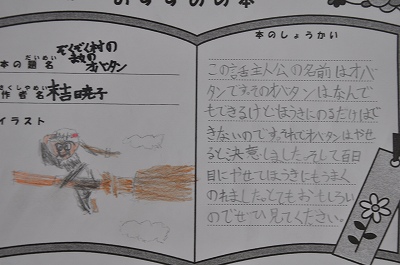 おすすめの本
ぞくぞく村の
魔女の
オバタン
本の題名
だいめい
作者名 末吉暁子
さくしゃめい
イラスト
本のしょうかい
この話主人公の名前はオバ
タンです。そのオバタンはなんで
もできるけどほうきにのるだけはで
きないのです。それでオバタンはやせ
ると決意しました。そして百日
目にやせてほうきにもうまく
のれました。とてもおもしろい
のでぜひ見てください。